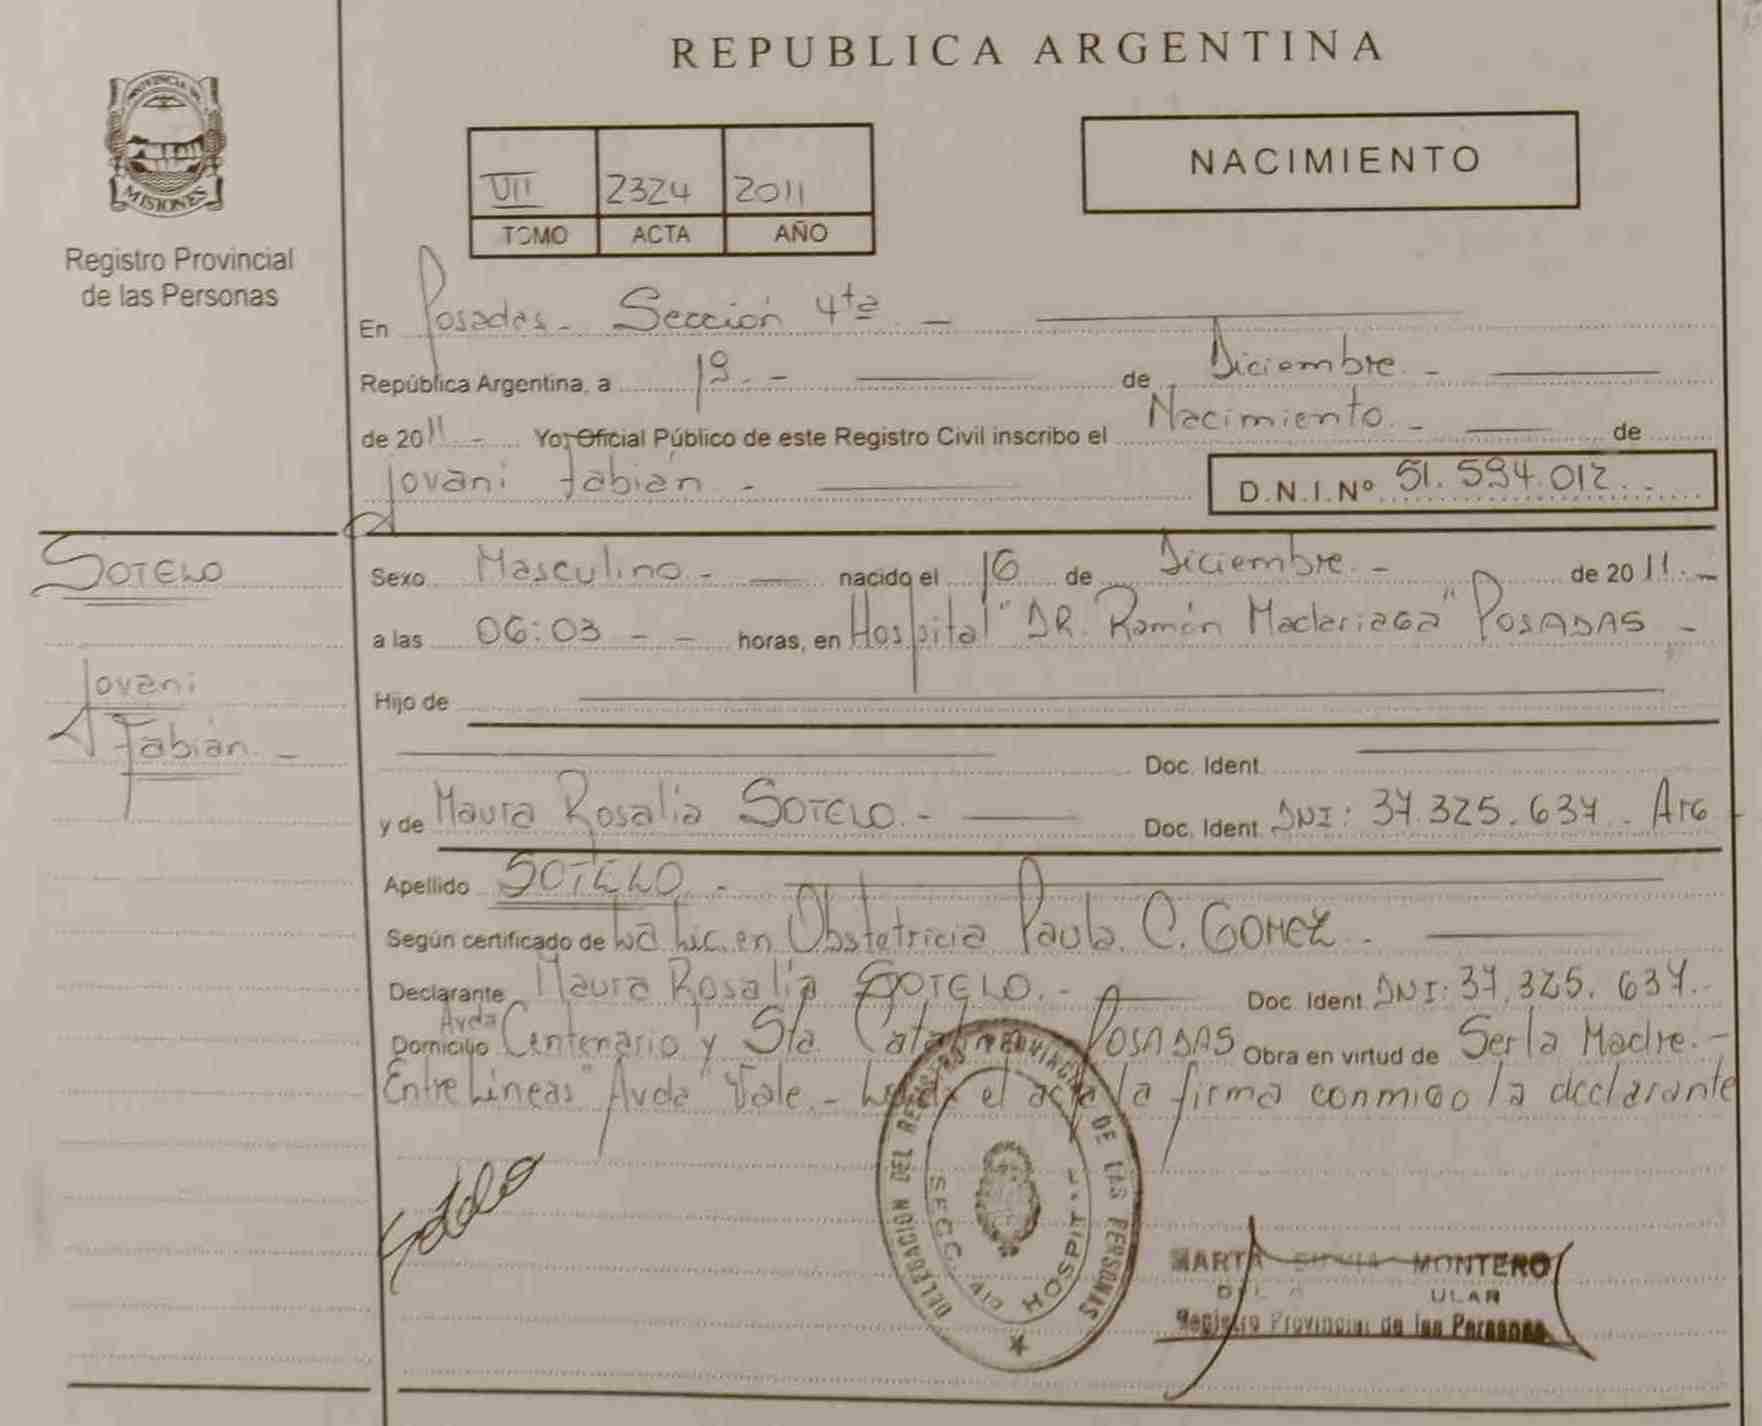 REPUBLICA ARGENTINA
PROVINCIA DE
MISIONES
Registro Provincial
de las Personas
NACIMIENTO
VII 2324 2011
TOMO ACTA AÑO
En Posadas - Sección 4ta -
República Argentina, a 19 - - de Diciembre. -
de 2011 - Yo, Oficial Público de este Registro Civil inscribo el Nacimiento. - de
Jovani Fabián - D.N.I.Nº 51.594.012. -
SOTELO
Jovani
Fabián. -
Sexo Masculino - - nacido el 16 de Diciembre. - de 2011. -
a las 06:03 - - horas, en Hospital "DR. Ramón Madariaga" POSADAS -
Hijo de
Doc. Ident.
y de Maura Rosalia SOTELO. - Doc. Ident. DNI: 37.325.637. Arg
Apellido SOTELO. -
Según certificado de La Lic. en Obstetricia Paula C. GOMEZ. -
Declarante Maura Rosalia SOTELO. - Doc. Ident. DNI: 37.325.637. -
Avda
Domicilio Centenario y Sta Catalina POSADAS Obra en virtud de Ser la Madre. -
Entre Líneas "Avda" Vale. - Leída el acta la firma conmigo la declarante
DELEGACION DEL REGISTRO PROVINCIAL DE LAS PERSONAS
SECC. HOSPITAL
MARTA SILVIA MONTERO
Registro Provincial de las Personas